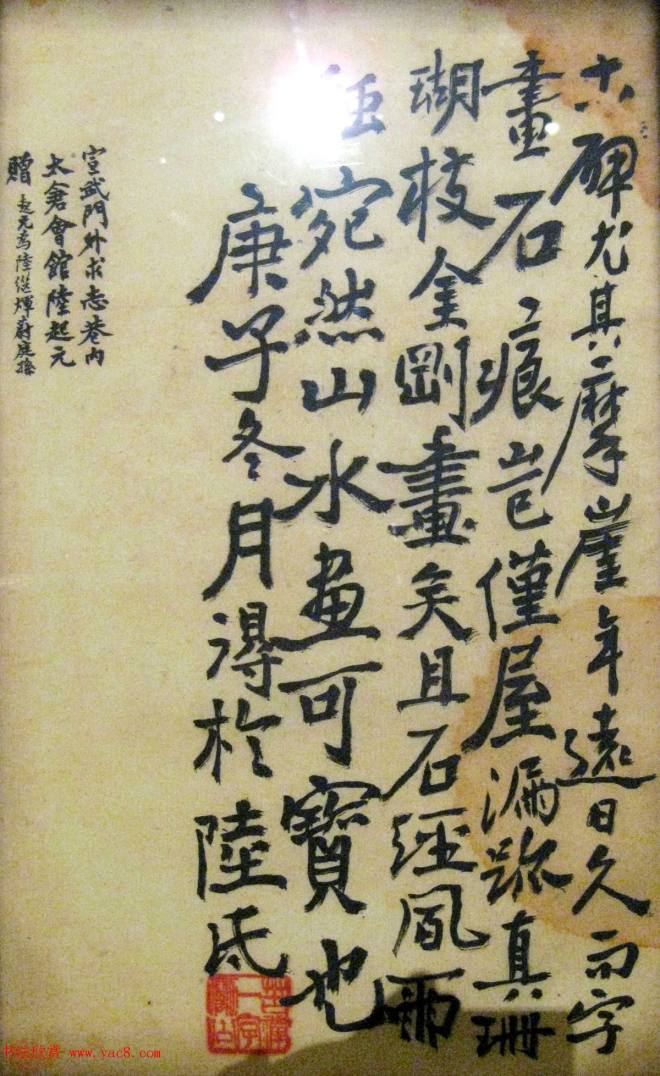 古碑尤其摩崖年遠日久而字
畫石痕豈僅屋漏跡真珊
瑚枝金剛畫矣且石經風雨
宛然山水畫可寶也
庚子冬月得於陸氏
宣武門外求志巷内
太倉會館陸起元
贈 起元為陸繼煇蔚庭孫
书法欣赏 www.yac8.com